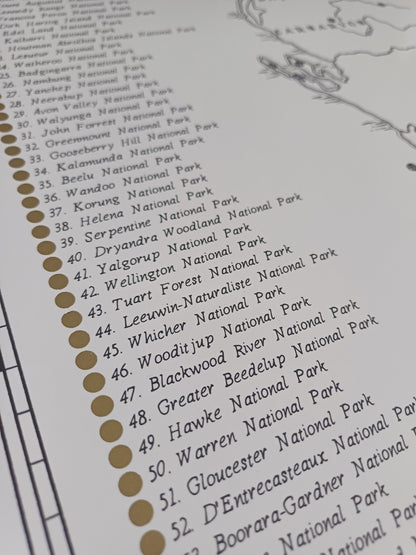 Kennedy Range National Park
Francois Peron National Park
Dirk Hartog Island National Park
Edel Land National Park
Kalbarri National Park
Houtman Abrolhos Islands National Park
Lesueur National Park
24. Watheroo National Park
25. Badgingarra National Park
26. Nambung National Park
27. Yanchep National Park
28. Neerabup National Park
29. Avon Valley National Park
30. Walyunga National Park
31. John Forrest National Park
32. Greenmount National Park
33. Gooseberry Hill National Park
34. Kalamunda National Park
35. Beelu National Park
36. Wandoo National Park
37. Korung National Park
38. Helena National Park
39. Serpentine National Park
40. Dryandra Woodland National Park
41. Yalgorup National Park
42. Wellington National Park
43. Tuart Forest National Park
44. Leeuwin-Naturaliste National Park
45. Whicher National Park
46. Wooditjup National Park
47. Blackwood River National Park
48. Greater Beedelup National Park
49. Hawke National Park
50. Warren National Park
51. Gloucester National Park
52. D'Entrecasteaux National Park
Boorara-Gardner National
National Park
National Park